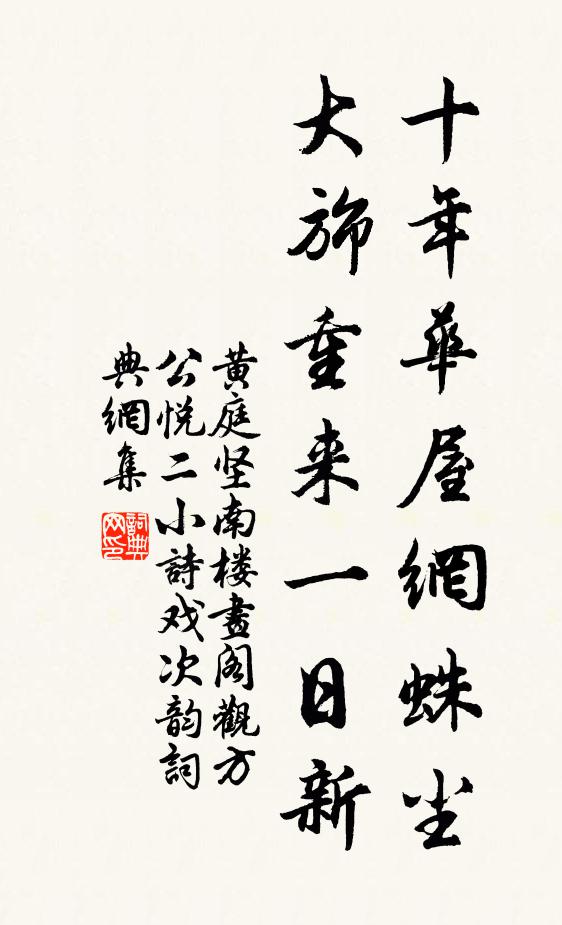 十年華屋網蛛尘
大旆重来一日新
黄庭坚南楼畫阁觀方
公悦二小詩戏次韵詞
典網集
詞典
网印